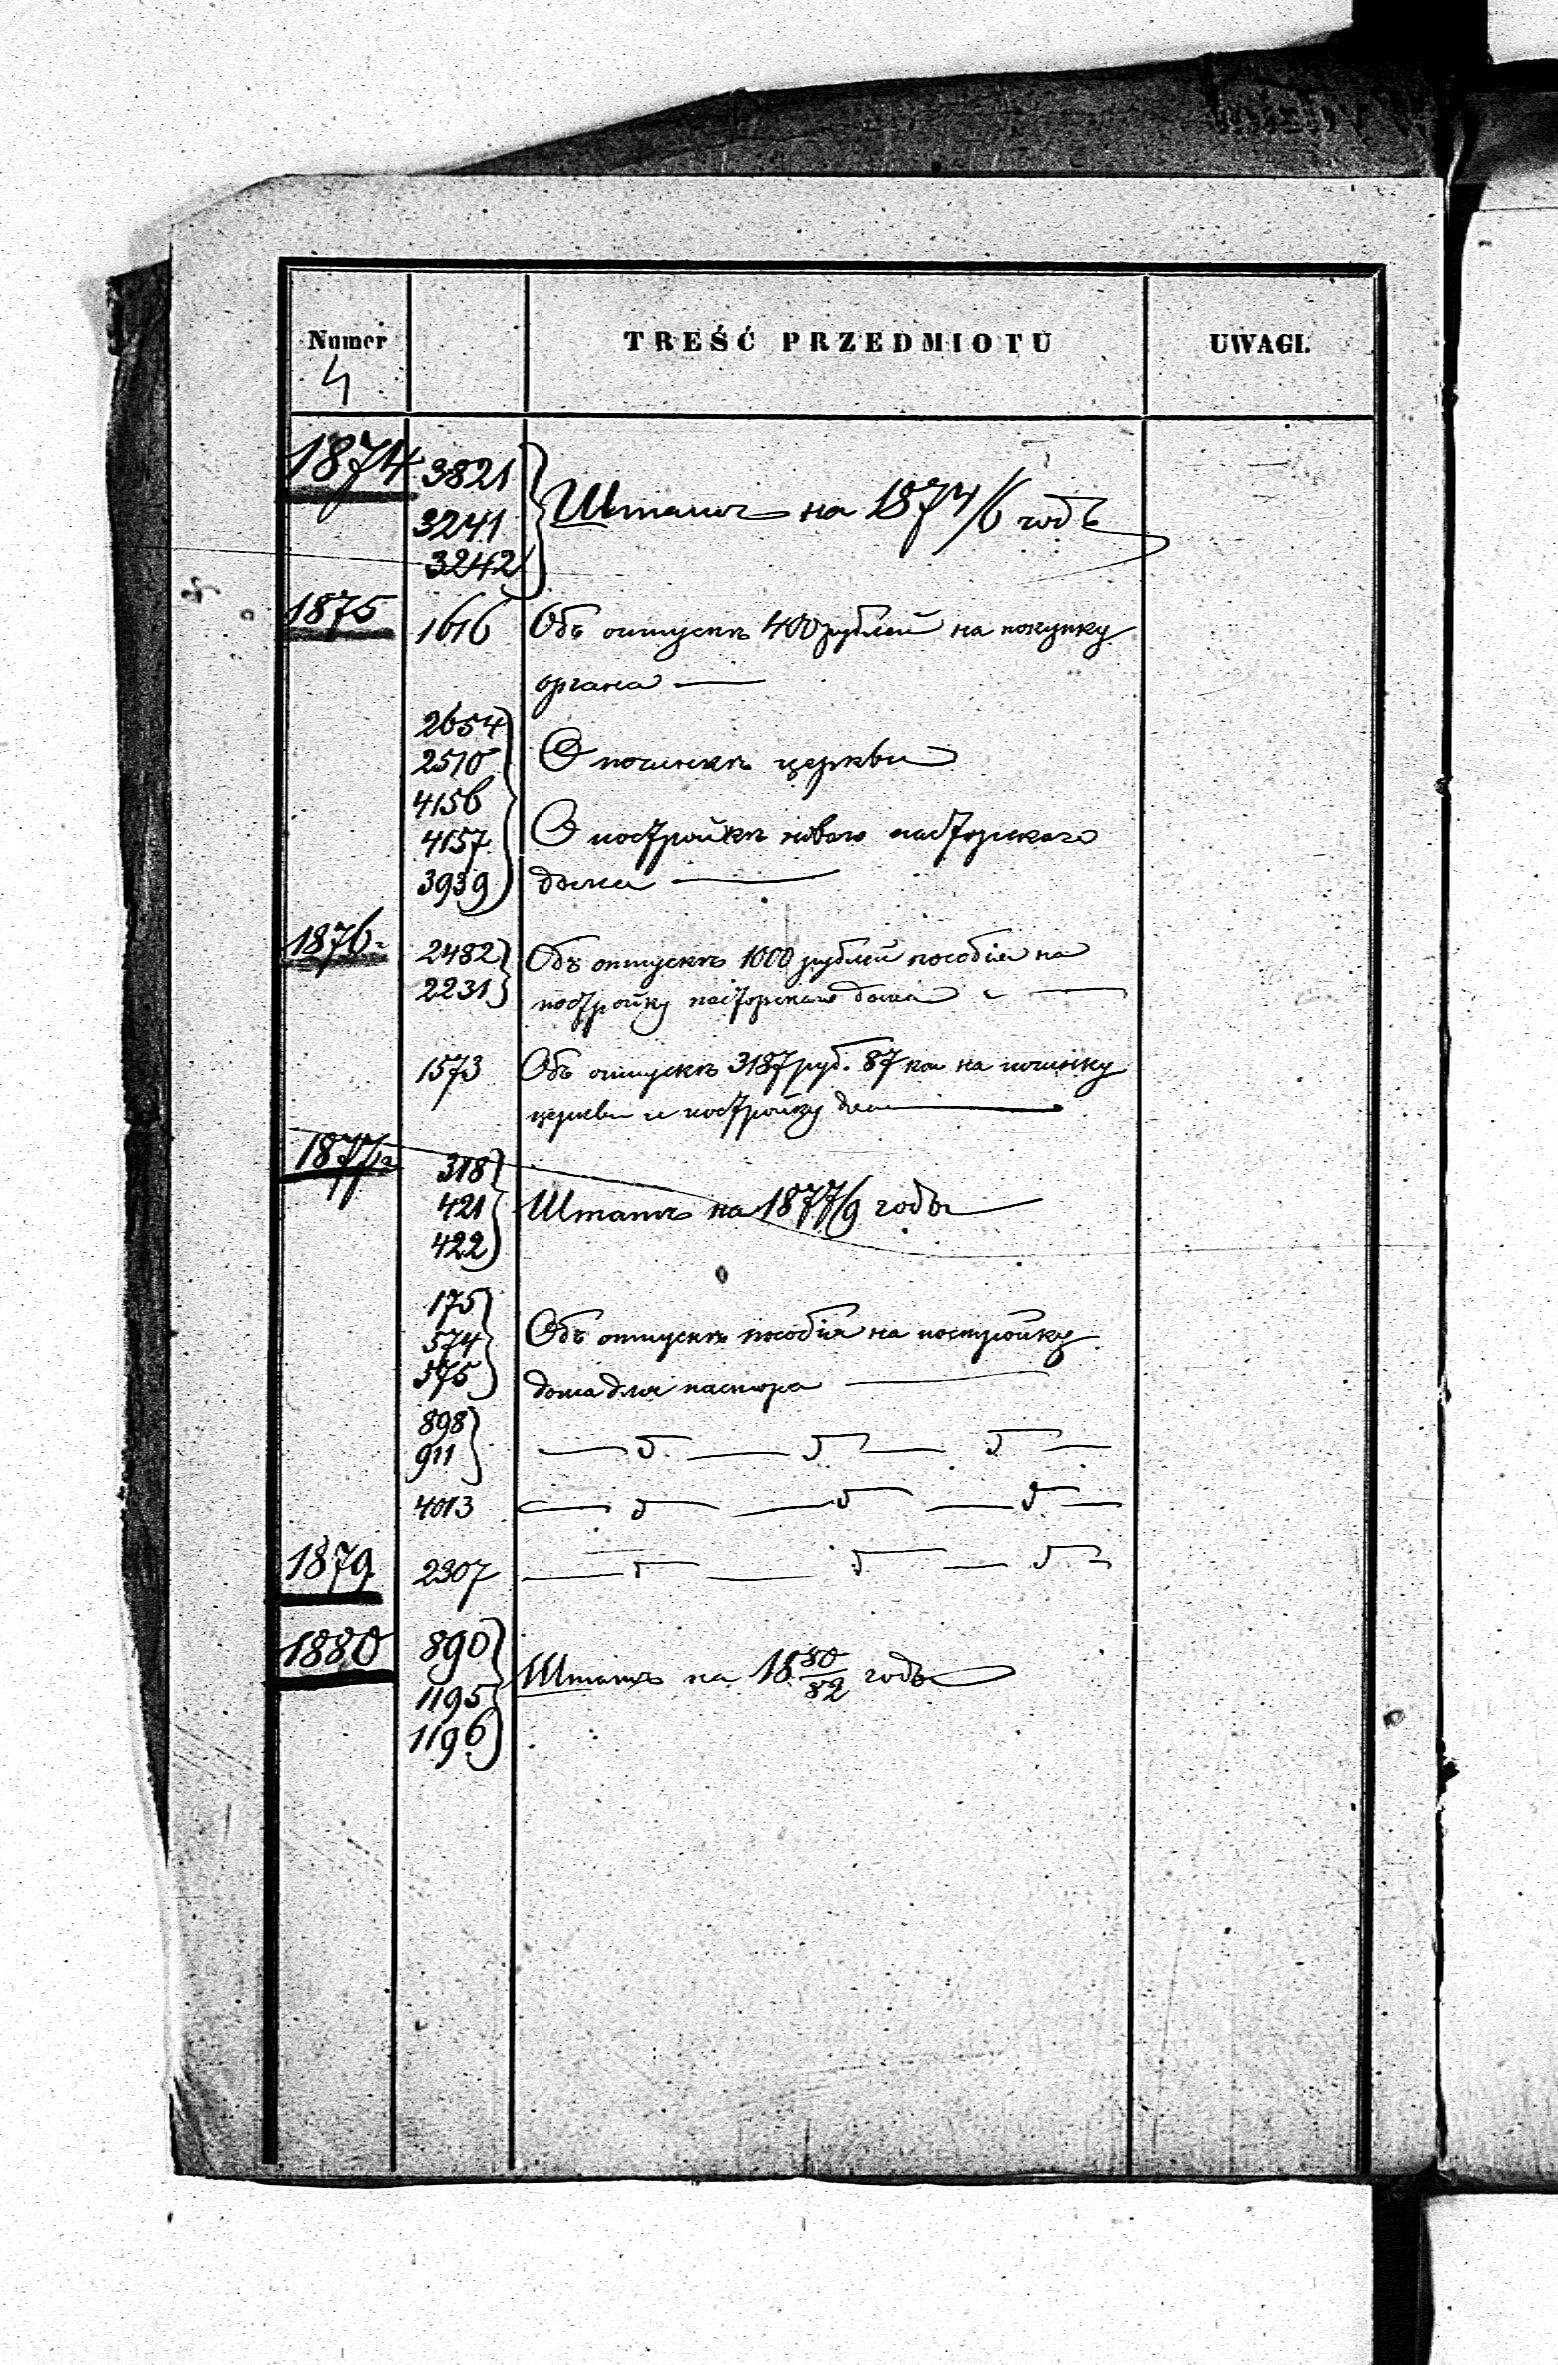 Numer TREŚĆ PRZEDMIOTU UWAGI.
4
1874 3821
3241 Штатъ на 1874/6 годъ
3242
1875 1616 Объ отпускѣ 400 рублей на покупку
органа —
2654
2510 О починкѣ церкви
4156
4157 О постройкѣ новаго пасторскаго
3939 дома —
1876 2482 Объ отпускѣ 1000 рублей пособія на
2231 постройку пасторскаго дома —
1573 Объ отпускѣ 3187 руб. 87 коп на починку
церкви и постройку дома —
1877 318
421 Штатъ на 1877/9 годы
422
175
574 Объ отпускѣ пособія на постройку
575 дома для пастора —
898
911
4013
1879 2307
1880 890
1195 Штатъ на 18 80/82 годы
1196